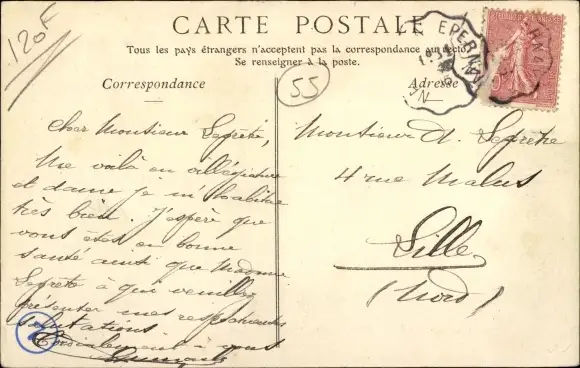 120F
CARTE POSTALE
Tous les pays étrangers n'acceptent pas la correspondance au recto.
Se renseigner à la poste.
Correspondance
55
Adresse
EPERN
Cher Monsieur Lefrète,
Me voilà en villégiature
et dame je m'habitue
très bien. J'espère que
vous êtes en bonne
santé ainsi que Madame
Lefrète à qui veuillez
présenter mes respectueuses
salutations
Cordialement à vous
Monsieur A. Lefrète
4 rue Malus
Lille
(Nord)